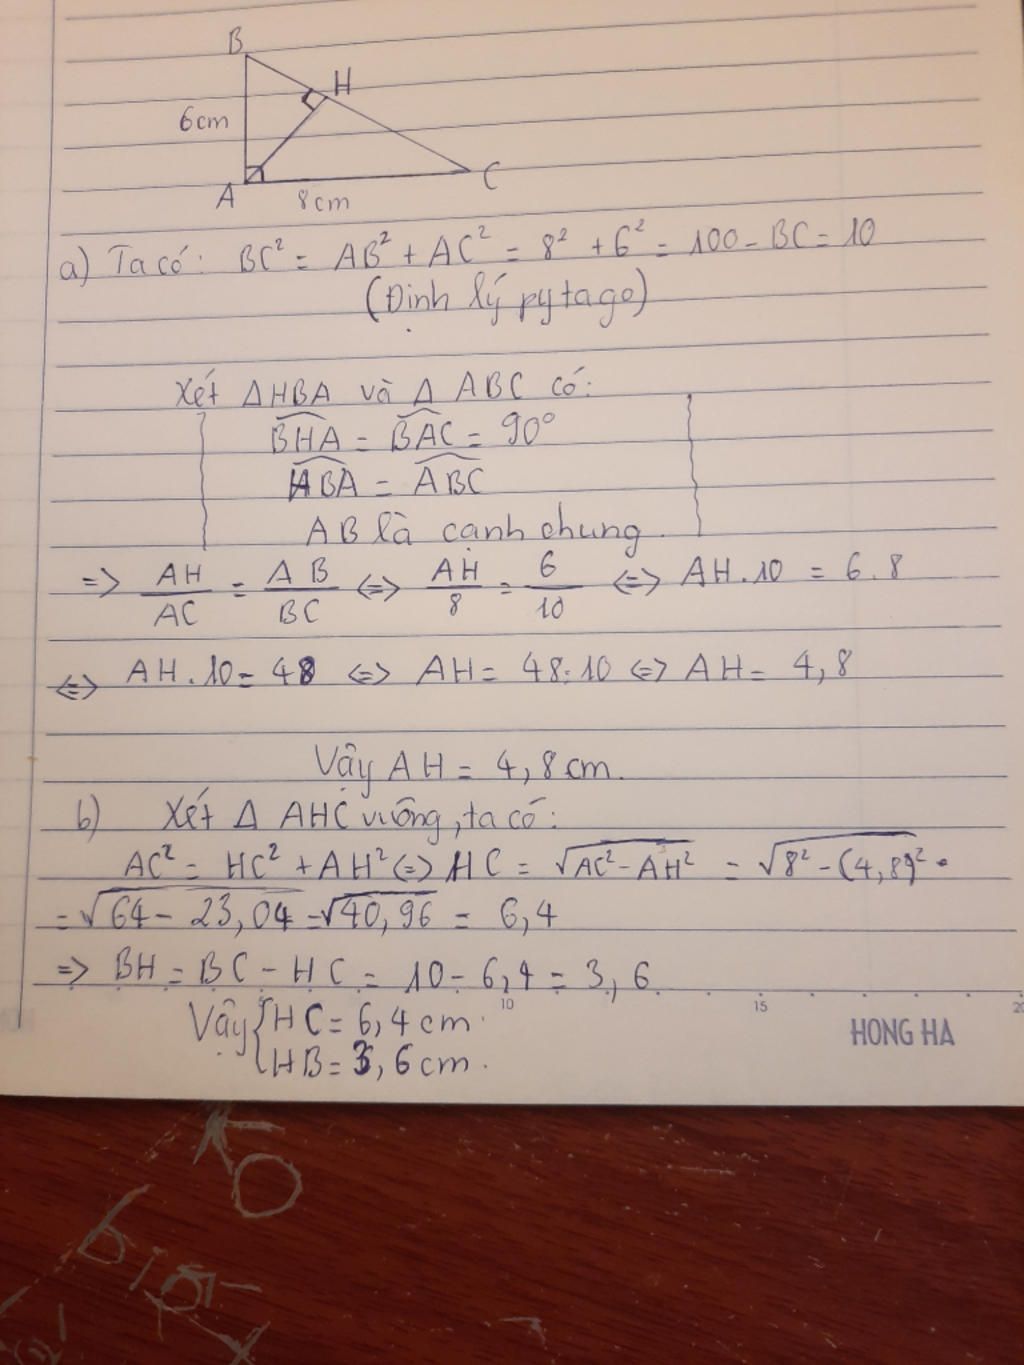 B
H
6cm
A
8cm
C
a) Ta có: BC² = AB² + AC² = 8² + 6² = 100 - BC = 10
(Định lý pytago)
Xét ΔHBA và Δ ABC có:
BHA = BAC = 90°
HBA = ABC
AB là cạnh chung
=> AH/AC = AB/BC <=> AH/8 = 6/10 <=> AH.10 = 6.8
<=> AH.10 = 48 <=> AH = 48:10 <=> AH = 4,8
Vậy AH = 4,8cm.
b) Xét Δ AHC vuông, ta có:
AC² = HC² + AH² <=> HC = √AC² - AH² = √8² - (4,8)²
= √64 - 23,04 = √40,96 = 6,4
=> BH = BC - HC = 10 - 6,4 = 3,6
10 15 20
Vậy { HC = 6,4cm.
HB = 3,6cm.
HONG HA